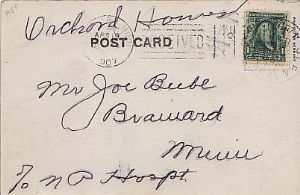 Orchard Homes
POST CARD
RECEIVED
APR
190
Mr Joe Bube
Brainard
Minn
c/o N P Hospt